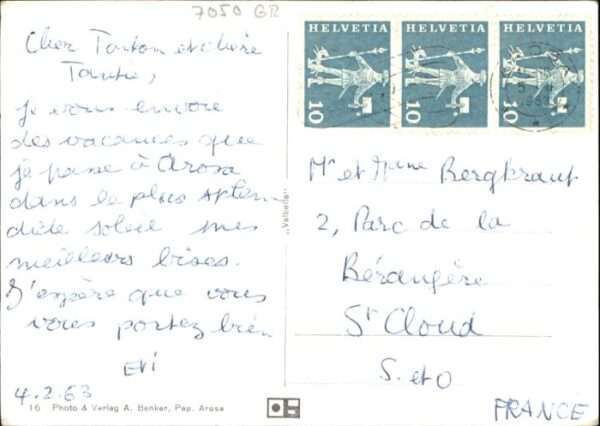 7050 GR
Cher Tonton et chère
Tantie,
je vous envoie
des vacances que
je passe à Arosa
dans le plus splen
dide soleil mes
meilleurs bises.
J'espère que vous
vous portez bien
Evi
4.2.63
16 Photo & Verlag A. Benker, Pap. Arosa
"Valbella"
HELVETIA
10
HELVETIA
10
HELVETIA
10
Mr et Mme Bergkraut
2, Parc de la
Bérangère
St Cloud
S. et O
FRANCE